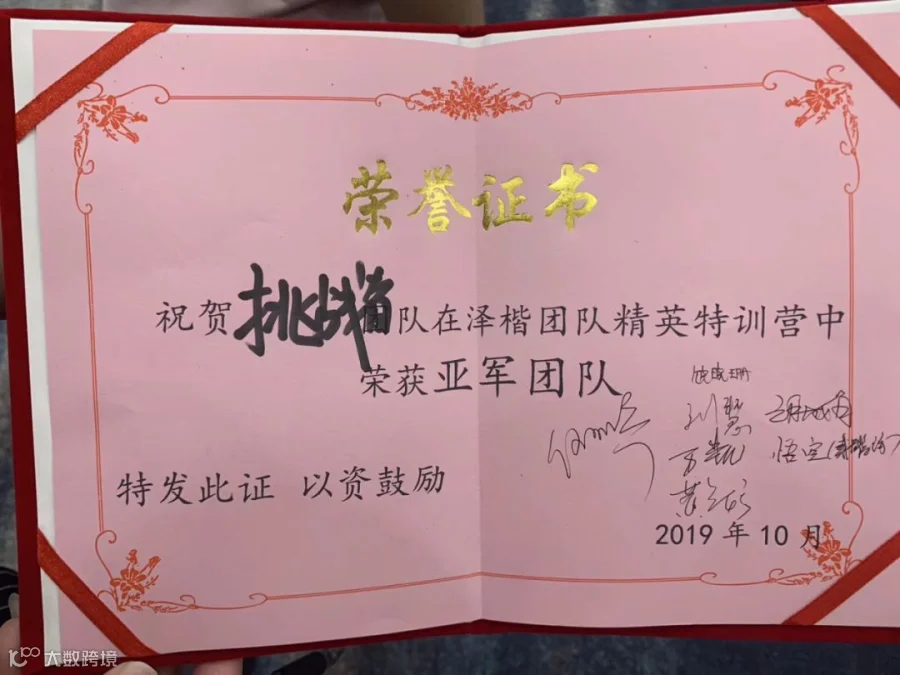 荣誉证书
祝贺挑战者团队在泽楷团队精英特训营中
荣获亚军团队
刘慧
万凯
悟空
特发此证 以资鼓励
2019 年 10 月
大数跨境